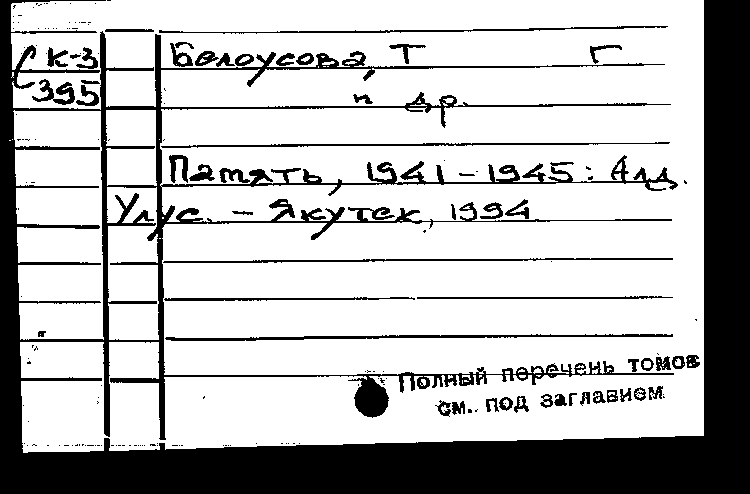 К-3
395
Белоусова, Т Г
и др.
Память, 1941-1945: Алд.
Улус. - Якутск, 1994
Полный перечень томов
см. под заглавием